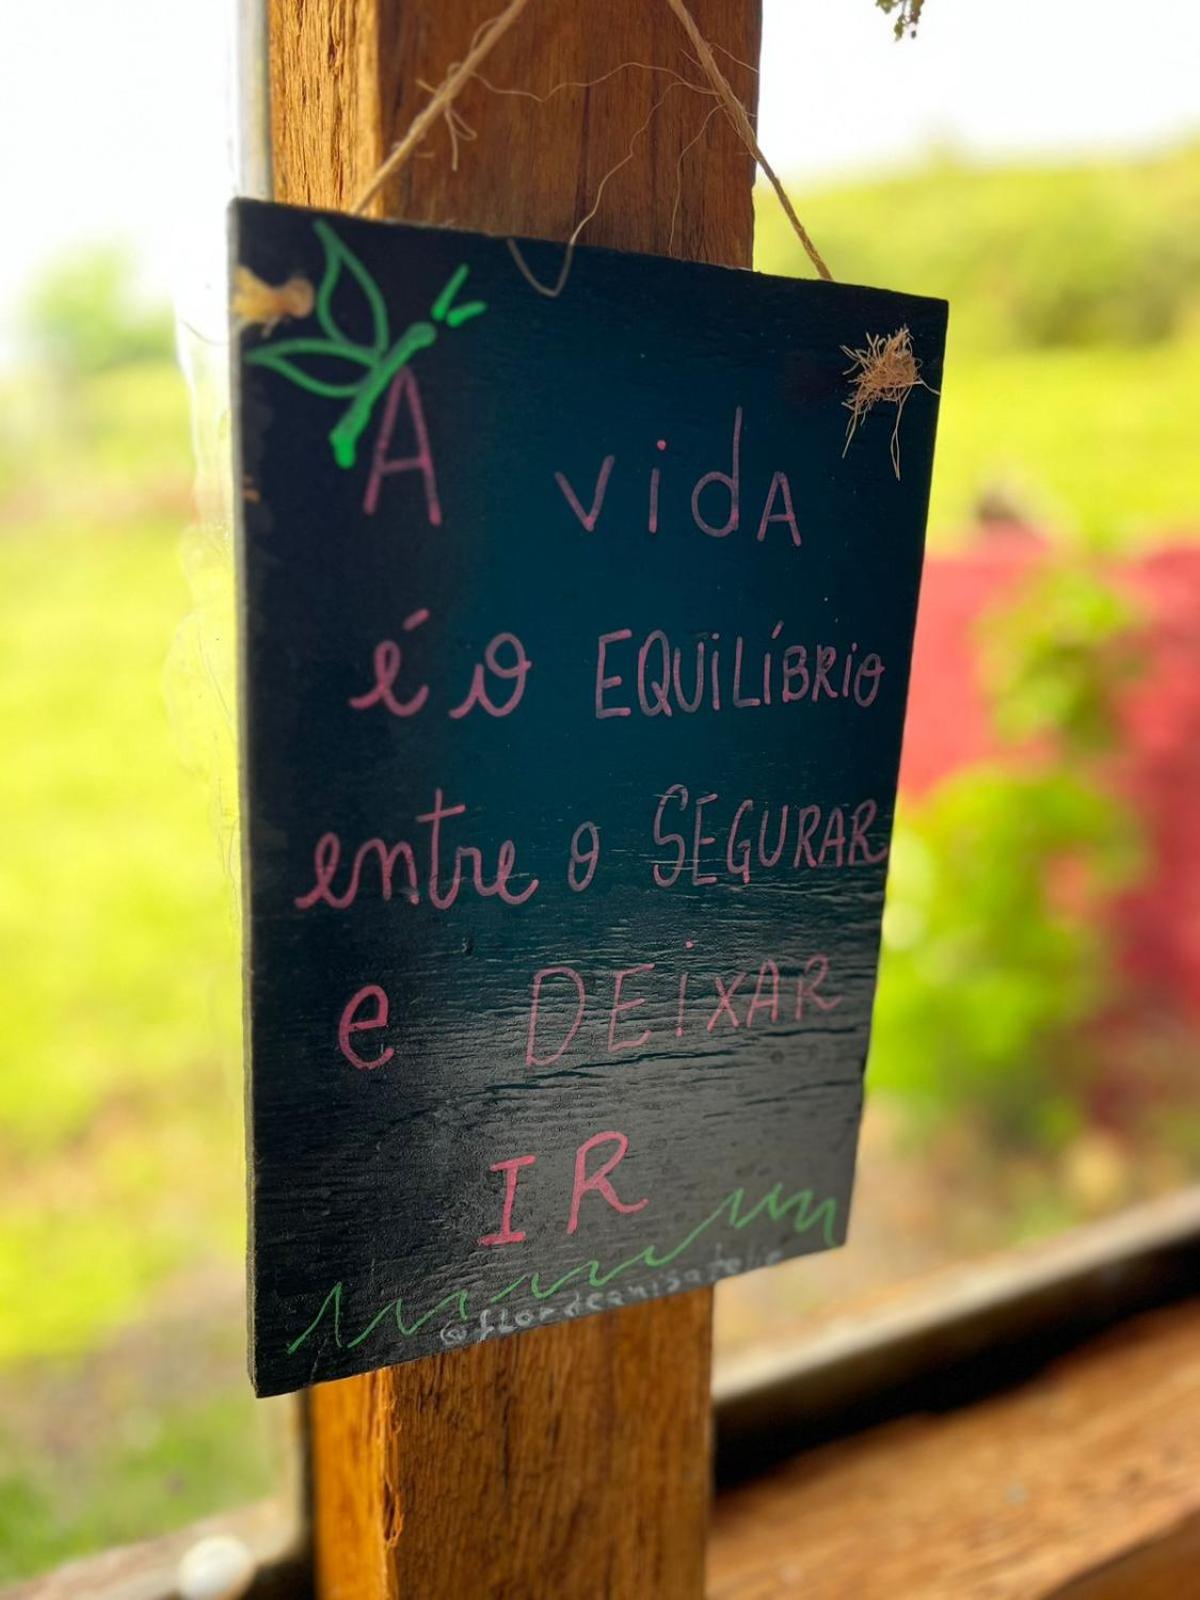 A vidA
é o EQUILÍBRIO
entre o SEGURAR
e DEIXAR
IR